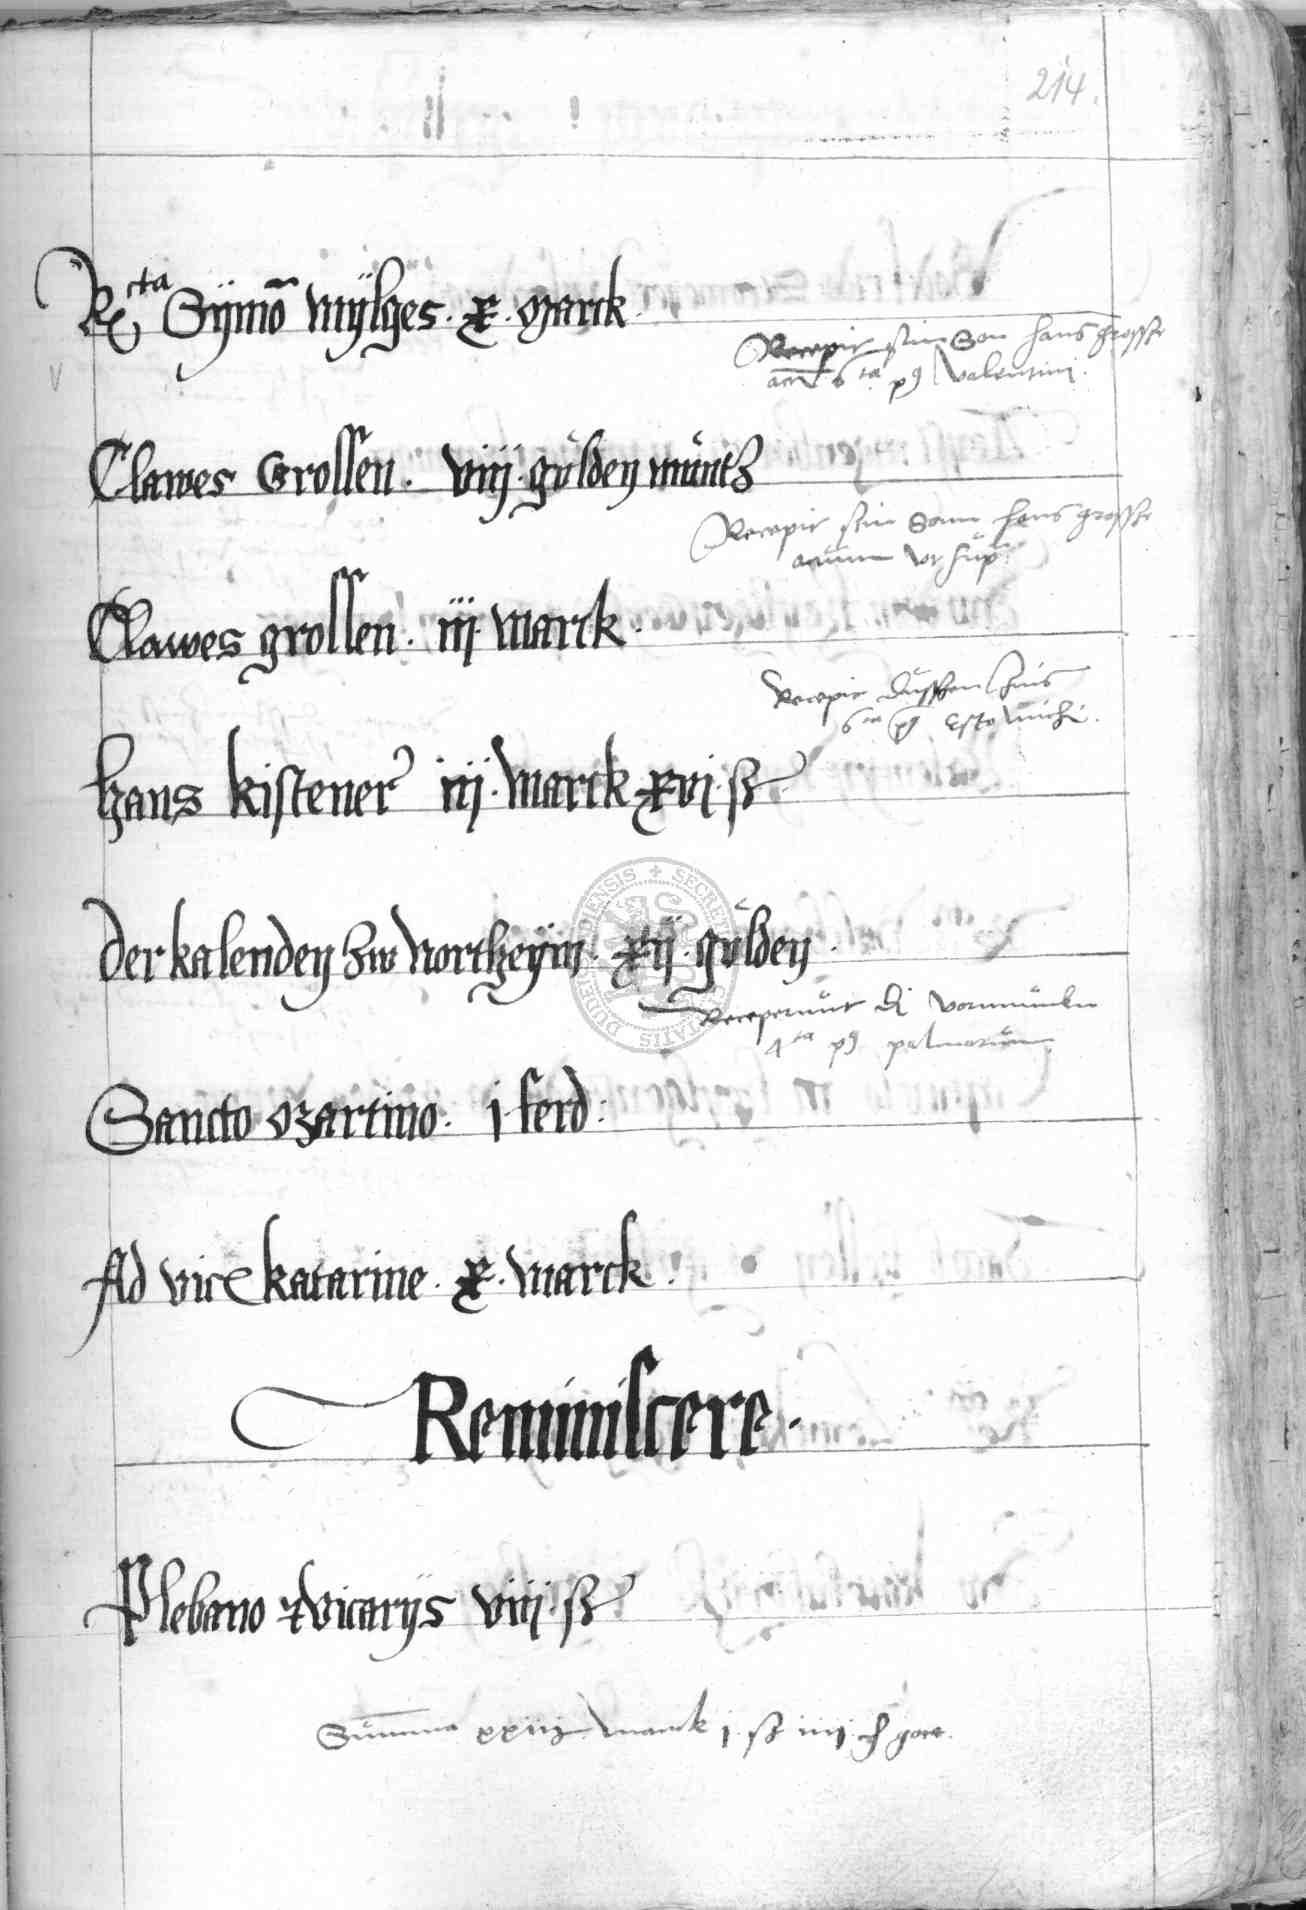 214.
R^ta Sÿmõ Mÿlges · x · Marck
Recepit sin Son hans grosse
6^ta p9 Valentini
Clawes Grossen · viiij · gulden müntz
Recepit sin Sonn hans grosse
Clawes grossen · iij · Marck ·
Recepit
6^ta p9 Esto michi ·
hans kistener iij · Marck xvj · ß
Der kalenden zw Northeÿm · xij · gulden ·
Receperunt di vormunden
4^ta p9 palmarum
Sancto Martino · j · ferd :
Ad vic katarine · x · Marck ·
Reminiscere ·
Plebano & vicarijs viiij · ß
Summa xxiiij Marck j · ß iiij
SECRET